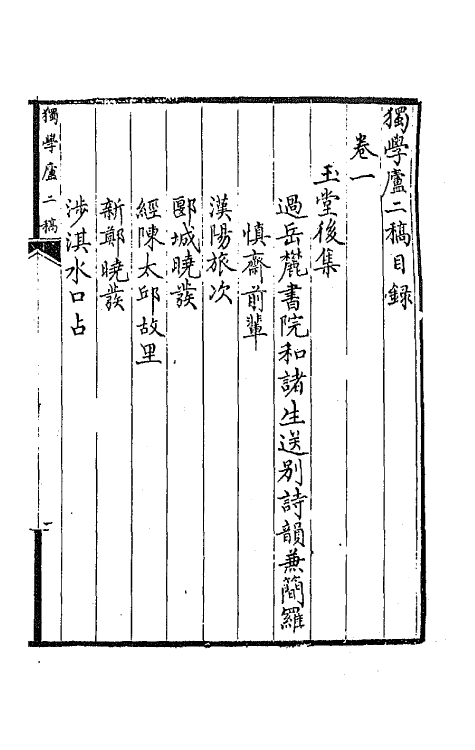 獨學廬二稿目錄
卷一
玉堂後集
過岳麓書院和諸生送別詩韻兼簡羅
慎齋前輩
漢陽旅次
郾城曉發
經陳太邱故里
新鄭曉發
涉淇水口占
獨學廬二稿